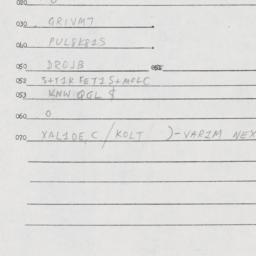 020
030 GRIVM7
040 PULSK815
050 DZOJB
052 S+T1R FET1S+MPLC
053 KNW QGL $
060 0
070 XAL1DE, C / KOLT )-VAR1M NEX